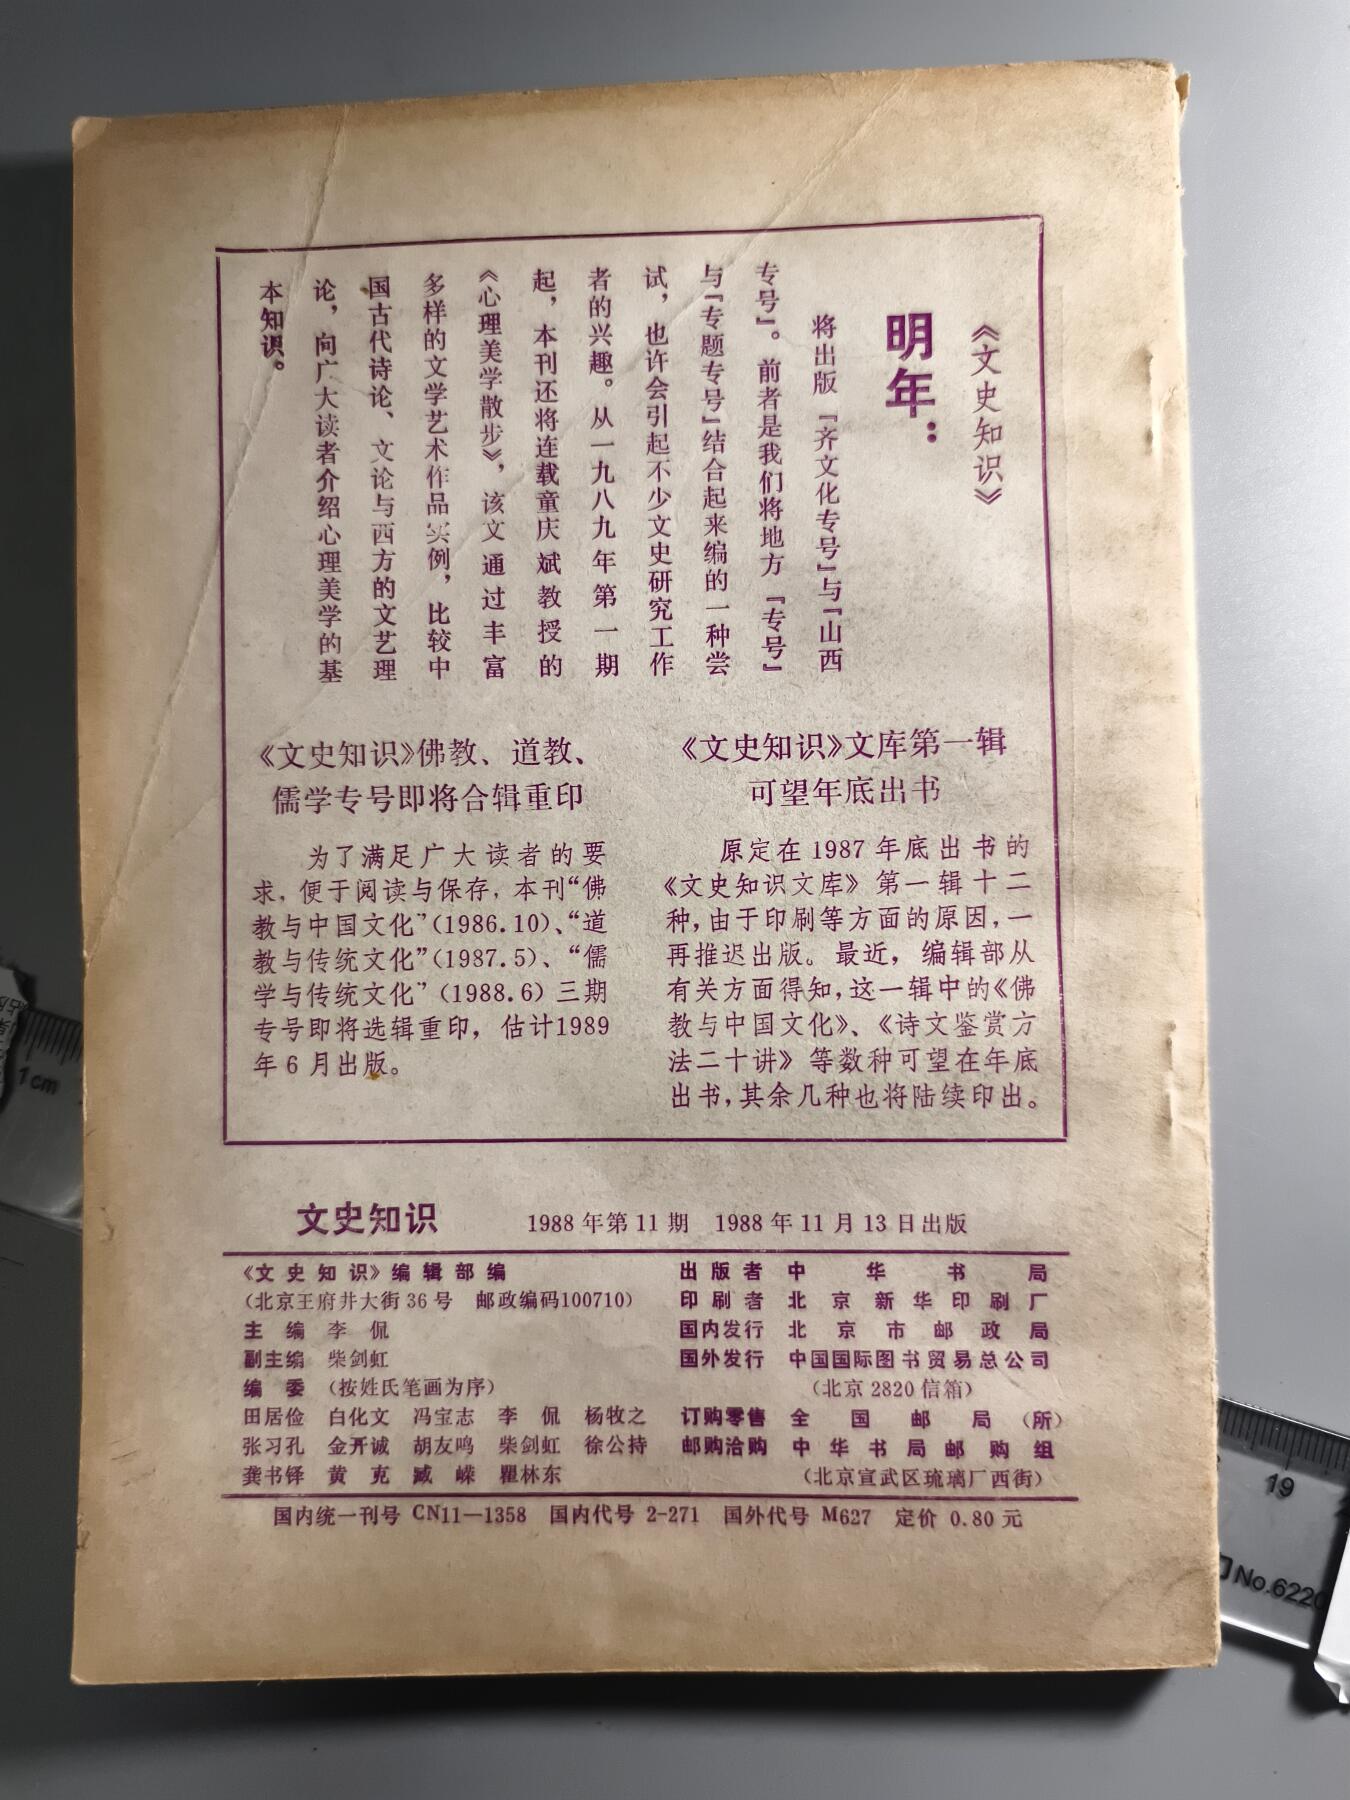 《文史知识》
明年：
将出版『齐文化专号』与『山西
专号』。前者是我们将地方『专号』
与『专题专号』结合起来编的一种尝
试，也许会引起不少文史研究工作
者的兴趣。从一九八九年第一期
起，本刊还将连载童庆斌教授的
《心理美学散步》，该文通过丰富
多样的文学艺术作品实例，比较中
国古代诗论、文论与西方的文艺理
论，向广大读者介绍心理美学的基
本知识。
《文史知识》佛教、道教、
儒学专号即将合辑重印
为了满足广大读者的要
求，便于阅读与保存，本刊“佛
教与中国文化”（1986.10）、“道
教与传统文化”（1987.5）、“儒
学与传统文化”（1988.6）三期
专号即将选辑重印，估计1989
年6月出版。
《文史知识》文库第一辑
可望年底出书
原定在1987年底出书的
《文史知识文库》第一辑十二
种，由于印刷等方面的原因，一
再推迟出版。最近，编辑部从
有关方面得知，这一辑中的《佛
教与中国文化》、《诗文鉴赏方
法二十讲》等数种可望在年底
出书，其余几种也将陆续印出。
文史知识 1988年第11期 1988年11月13日出版
《文史知识》编辑部编
（北京王府井大街36号 邮政编码100710）
主编 李侃
副主编 柴剑虹
编委（按姓氏笔画为序）
田居俭 白化文 冯宝志 李侃 杨牧之
张习孔 金开诚 胡友鸣 柴剑虹 徐公持
龚书铎 黄克 臧嵘 瞿林东
出版者 中华书局
印刷者 北京新华印刷厂
国内发行 北京市邮政局
国外发行 中国国际图书贸易总公司
（北京2820信箱）
订购零售 全国邮局（所）
邮购洽购 中华书局邮购组
（北京宣武区琉璃厂西街）
国内统一刊号 CN11—1358 国内代号 2-271 国外代号 M627 定价 0.80元
1cm
19
No.6220